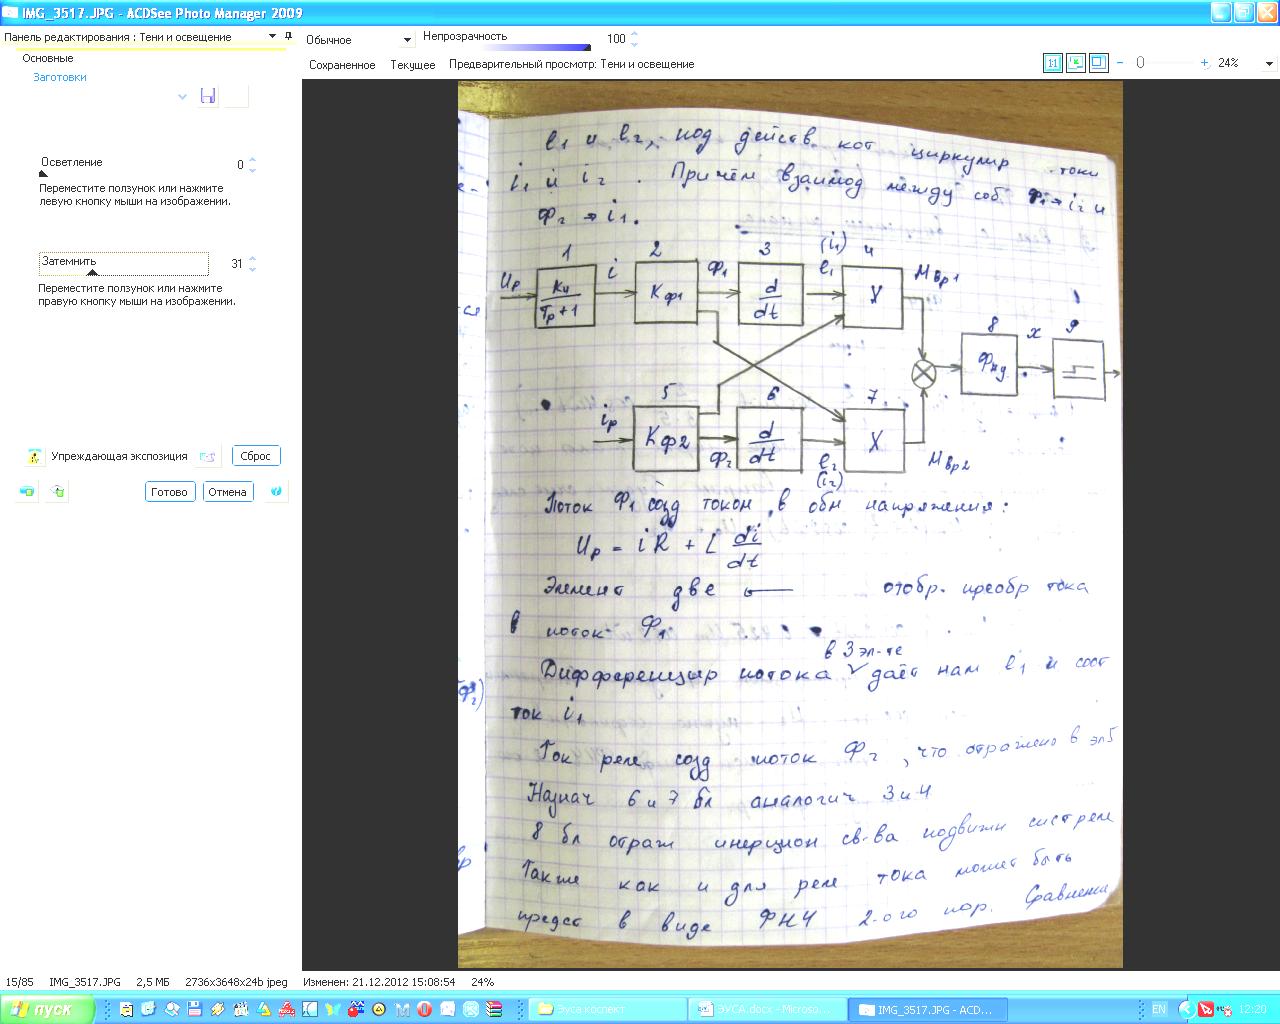 IMG_3517.JPG - ACDSee Photo Manager 2009
Панель редактирования : Тени и освещение
Основные
Заготовки
Осветление 0
Переместите ползунок или нажмите
левую кнопку мыши на изображении.
Затемнить 31
Переместите ползунок или нажмите
правую кнопку мыши на изображении.
Упреждающая экспозиция Сброс
Готово Отмена
Обычное Непрозрачность 100
Сохраненное Текущее Предварительный просмотр: Тени и освещение 24%
e1 и e2, под действ. кот циркулир токи
i1 и i2 . Причём взаимод между соб. Ф1→i2 и
Ф2→i1.
1 2 3 (i1) 4
Up i Ф1 e1 Мвр1
Kи/Tp+1 Kф1 d/dt X
8 x 9
Фнд
5 6 7
ip Kф2 Ф2 d/dt e2 (i2) X Мвр2
Поток Ф1 созд током в обм напряжения:
Up = iR + L di/dt
Элемент две отобр. преобр тока
в поток Ф1
в 3 эл-те
Дифференцир потока даёт нам e1 и соот
ток i1
Ток реле созд поток Ф2, что отражено в эл5
Назнач 6 и 7 бл аналогич 3 и 4
8 бл отраж инерцион св-ва подвижн сист реле
Также как и для реле тока может быть
предст в виде ФНЧ 2-ого пор. Сравнение
15/85 IMG_3517.JPG 2,5 МБ 2736x3648x24b jpeg Изменен: 21.12.2012 15:08:54 24%
пуск Эуса коспект ЭУСА.docx - Microso... IMG_3517.JPG - ACD... EN 12:20